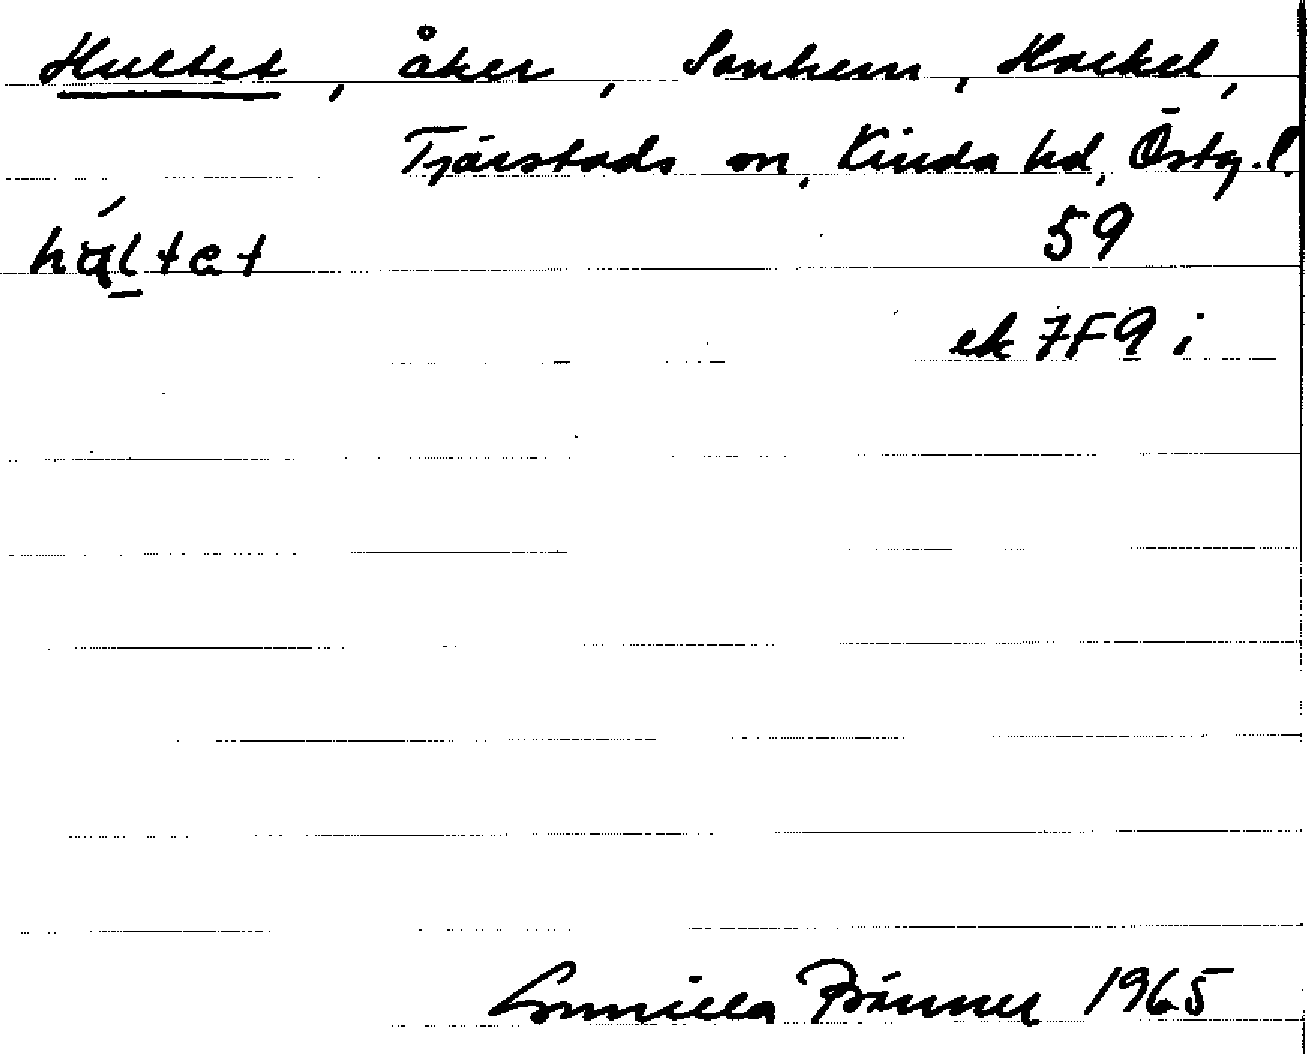 Hultet, åker, Sanhem, Hackel,
Tjärstads sn, Kinda hd, Östg.l.
hɥltet
59
ek 7F9 i
Gunilla Bränner 1965